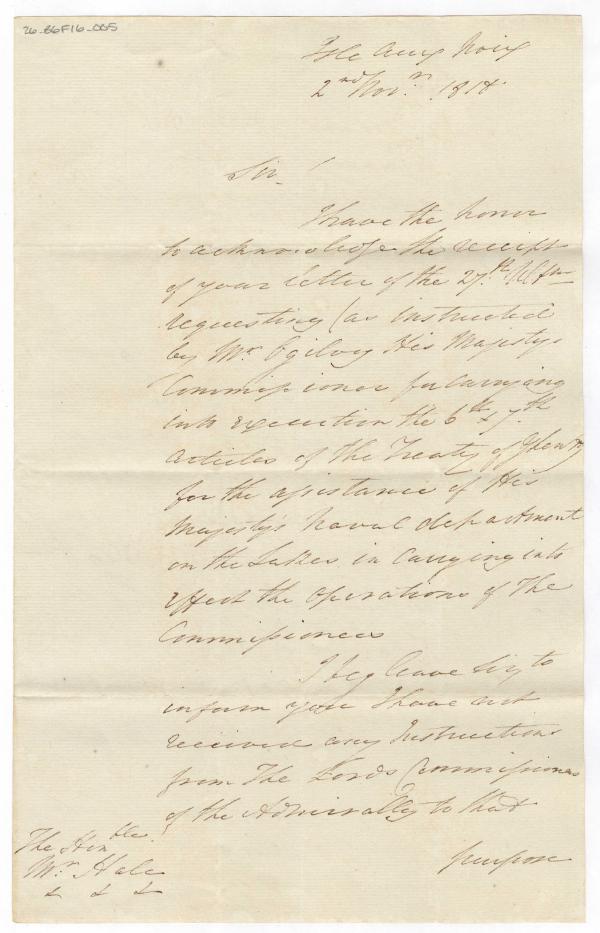 26-B6F16-005
Isle Aux Noix
2nd Novr. 1818
Sir,
I have the honor
to acknowledge the receipt
of your letter of the 27th Ulto
requesting (as instructed
by Mr. Ogilvy His Majestys
Commissioner for Carrying
into execution the 6th & 7th
articles of the Treaty of Ghent)
for the assistance of His
Majesty's Naval department
on the Lakes in Carrying into
effect the Operations of The
Commissioners
I beg leave Sir, to
inform you I have not
received any Instructions
from The Lords Commissioners
of the Admiralty to that
purpose
The Honble.
Mr. Hale
& & &